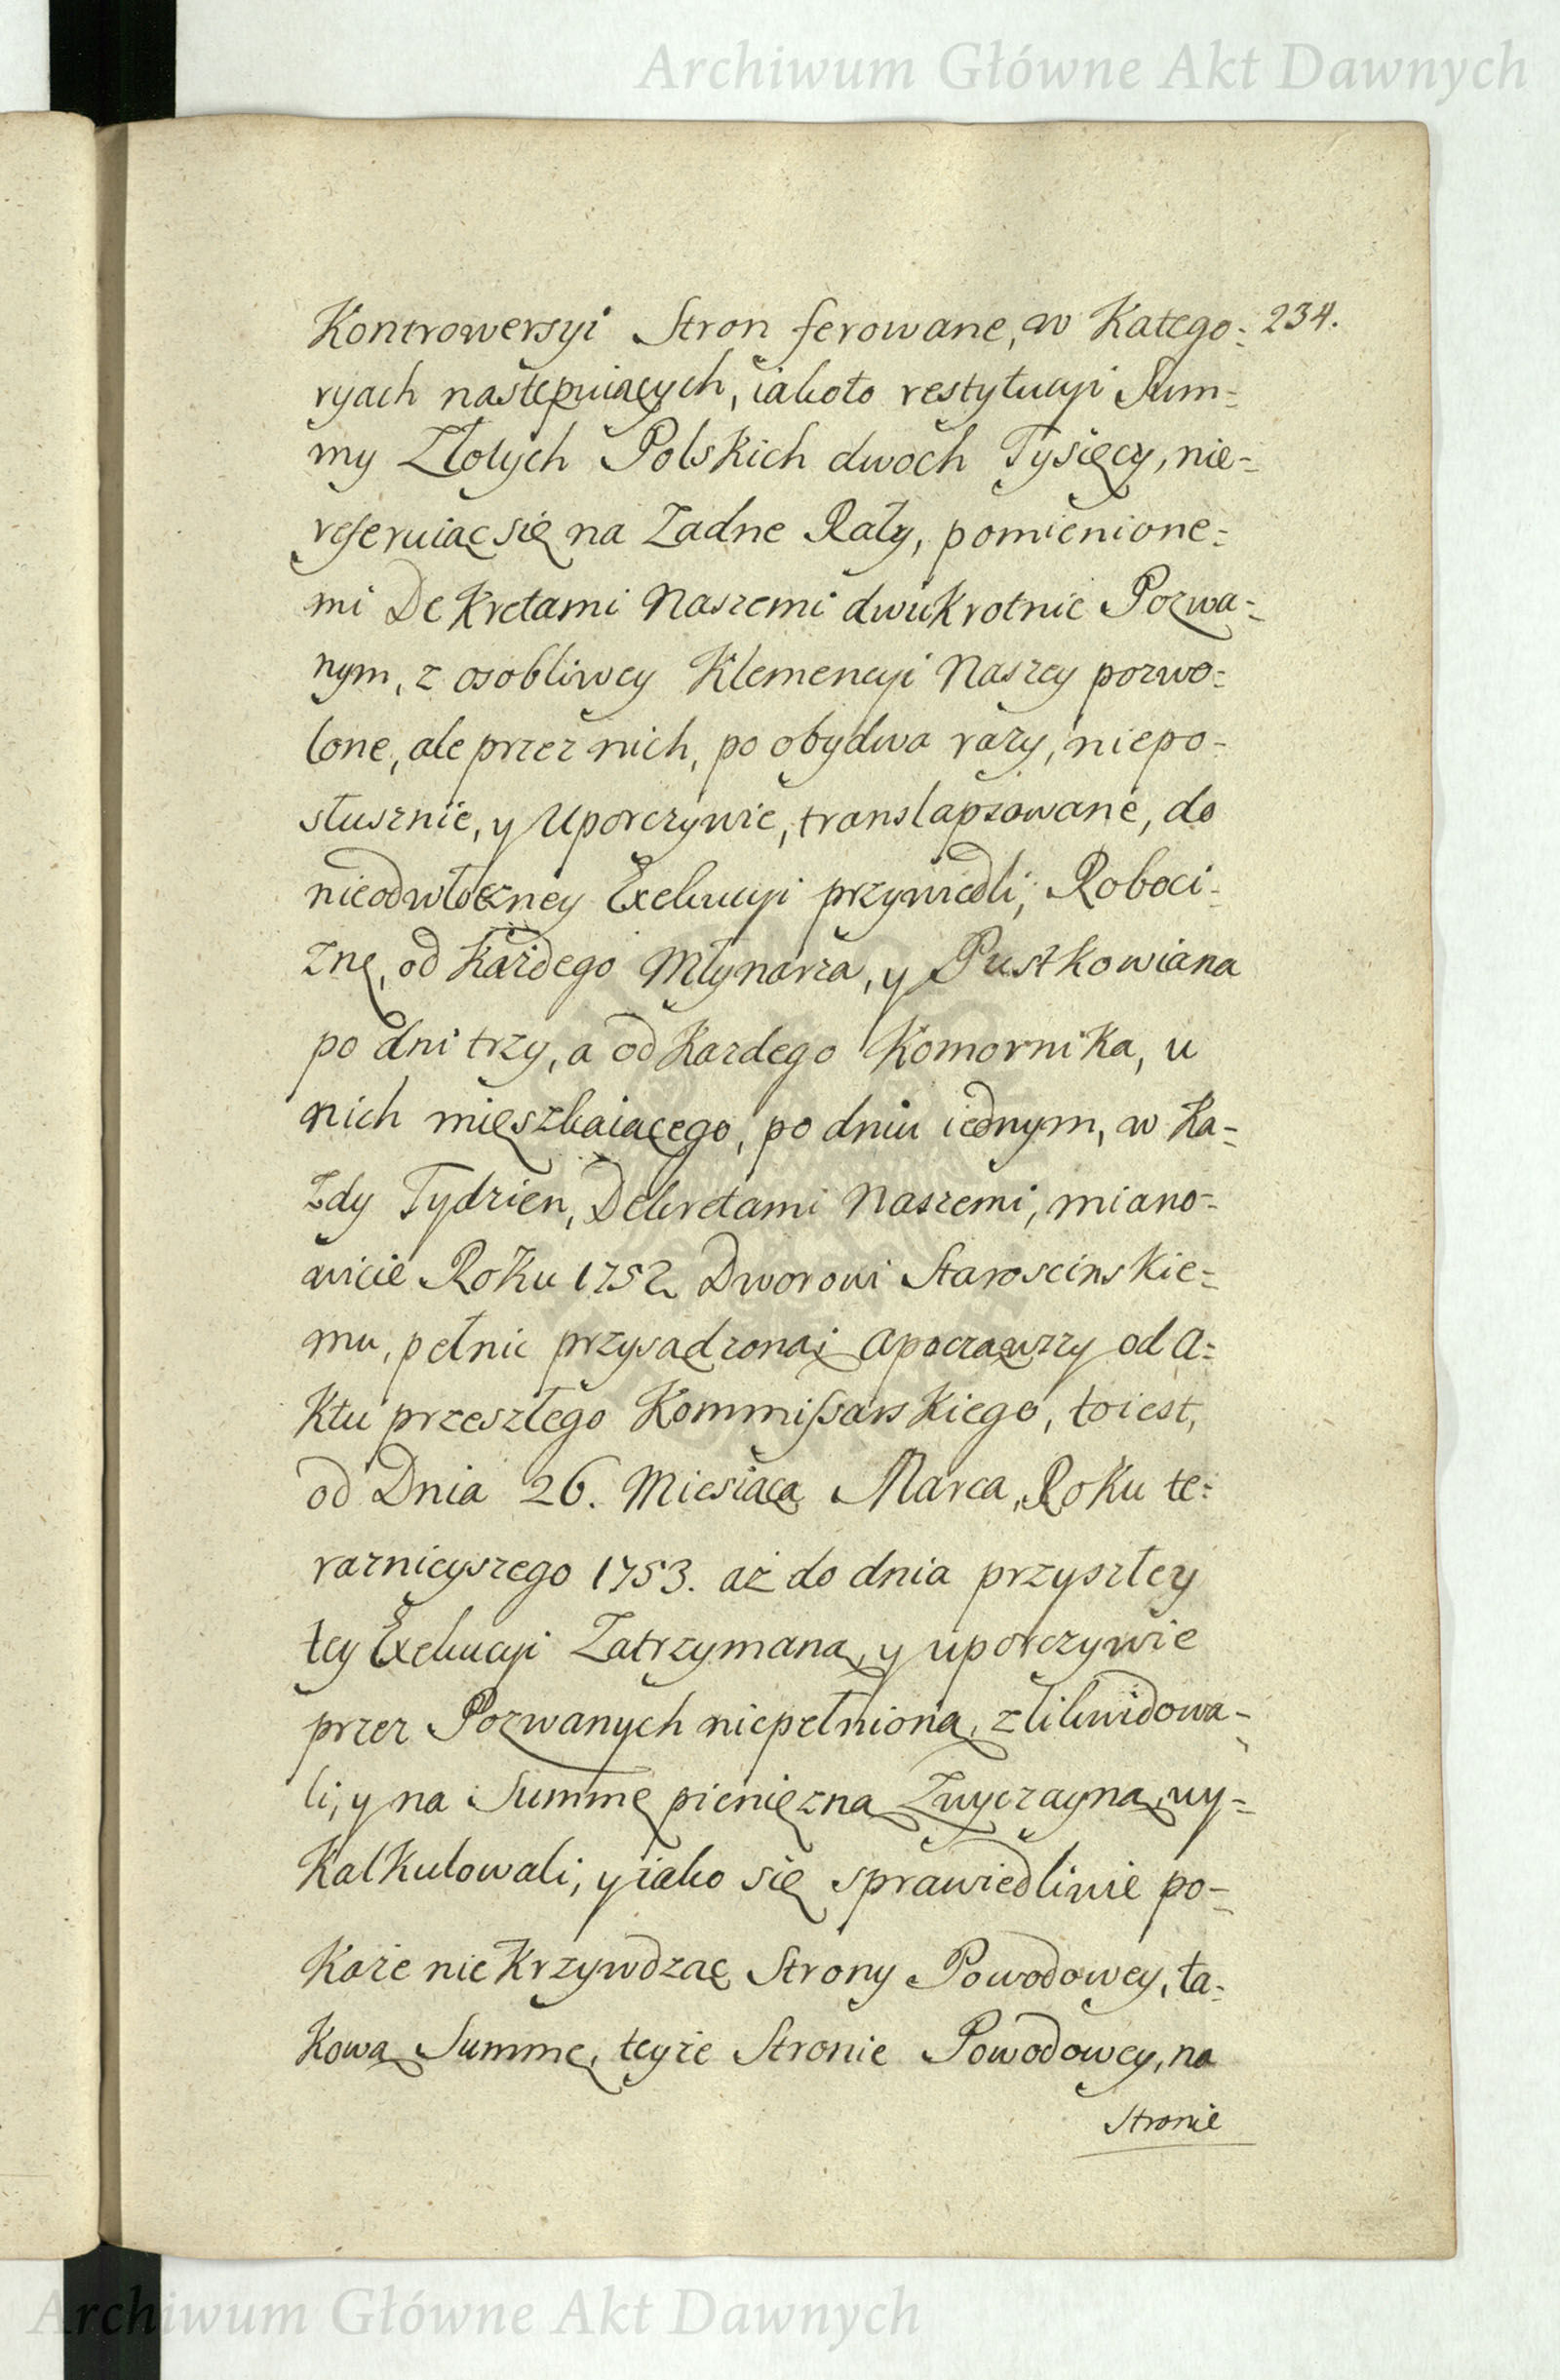 Archiwum Główne Akt Dawnych
Kontrowersyi Stron ferowane, w Katego= 234.
ryach następuiących, iakoto restytucyi Sum=
my Złotych Polskich dwoch Tysięcy, nie=
referuiąc się na Zadne Raty, pomienione=
mi Dekretami Naszemi dwukrotnie Pozwa=
nym, z osobliwey Klemencyi Naszey pozwo=
lone, ale przez nich, po obydwa razy, niepo=
słusznie, y Uporczywie, translapsowane, do
nieodwłoczney Exekucyi przywiedli; Roboci=
znę, od Każdego Młynarza, y Pustkowiana
po dni trzy, a od Kazdego Komornika, u
nich mięszkaiącego, po dniu iednym, w Ka=
zdy Tydzien, Dekretami Naszemi, miano=
wicie Roku 1752 Dworowi Staroscinskie=
mu, pełnic przysądzoną; a począwszy od A=
Ktu przeszłego Kommissarskiego, toiest,
od Dnia 26. Miesiąca Marca, Roku te=
raznieyszego 1753. aż do dnia przyszłey
tey Exekucyi Zatrzymaną, y uporczywie
przez Pozwanych niepełnioną, zlikwidowa=
li, y na Summę pienięzną Zwyczayną, wy=
Kalkulowali, y iako się sprawiedliwie po=
Każe nie Krzywdząc Strony Powodowey, ta=
Kową Summę, teyże Stronie Powodowey, na
Stronie
Archiwum Główne Akt Dawnych